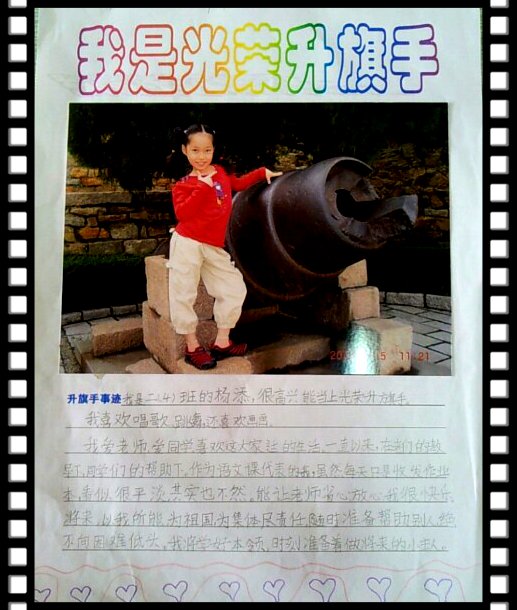 我是光荣升旗手
11:21
升旗手事迹 我是二(4)班的杨添,很高兴能当上光荣升旗手。
我喜欢唱歌、跳舞,还喜欢画画。
我爱老师,爱同学喜欢这大家庭的生活。一直以来,在老师们的教
导下,同学们的帮助下,作为语文课代表的我,虽然每天只是收发作业
本,看似很平淡,其实也不然,能让老师省心放心我很快乐。
将来,以我所能为祖国为集体尽责任,随时准备帮助别人,绝
不向困难低头,我将学好本领,时刻准备着做将来的小主人。